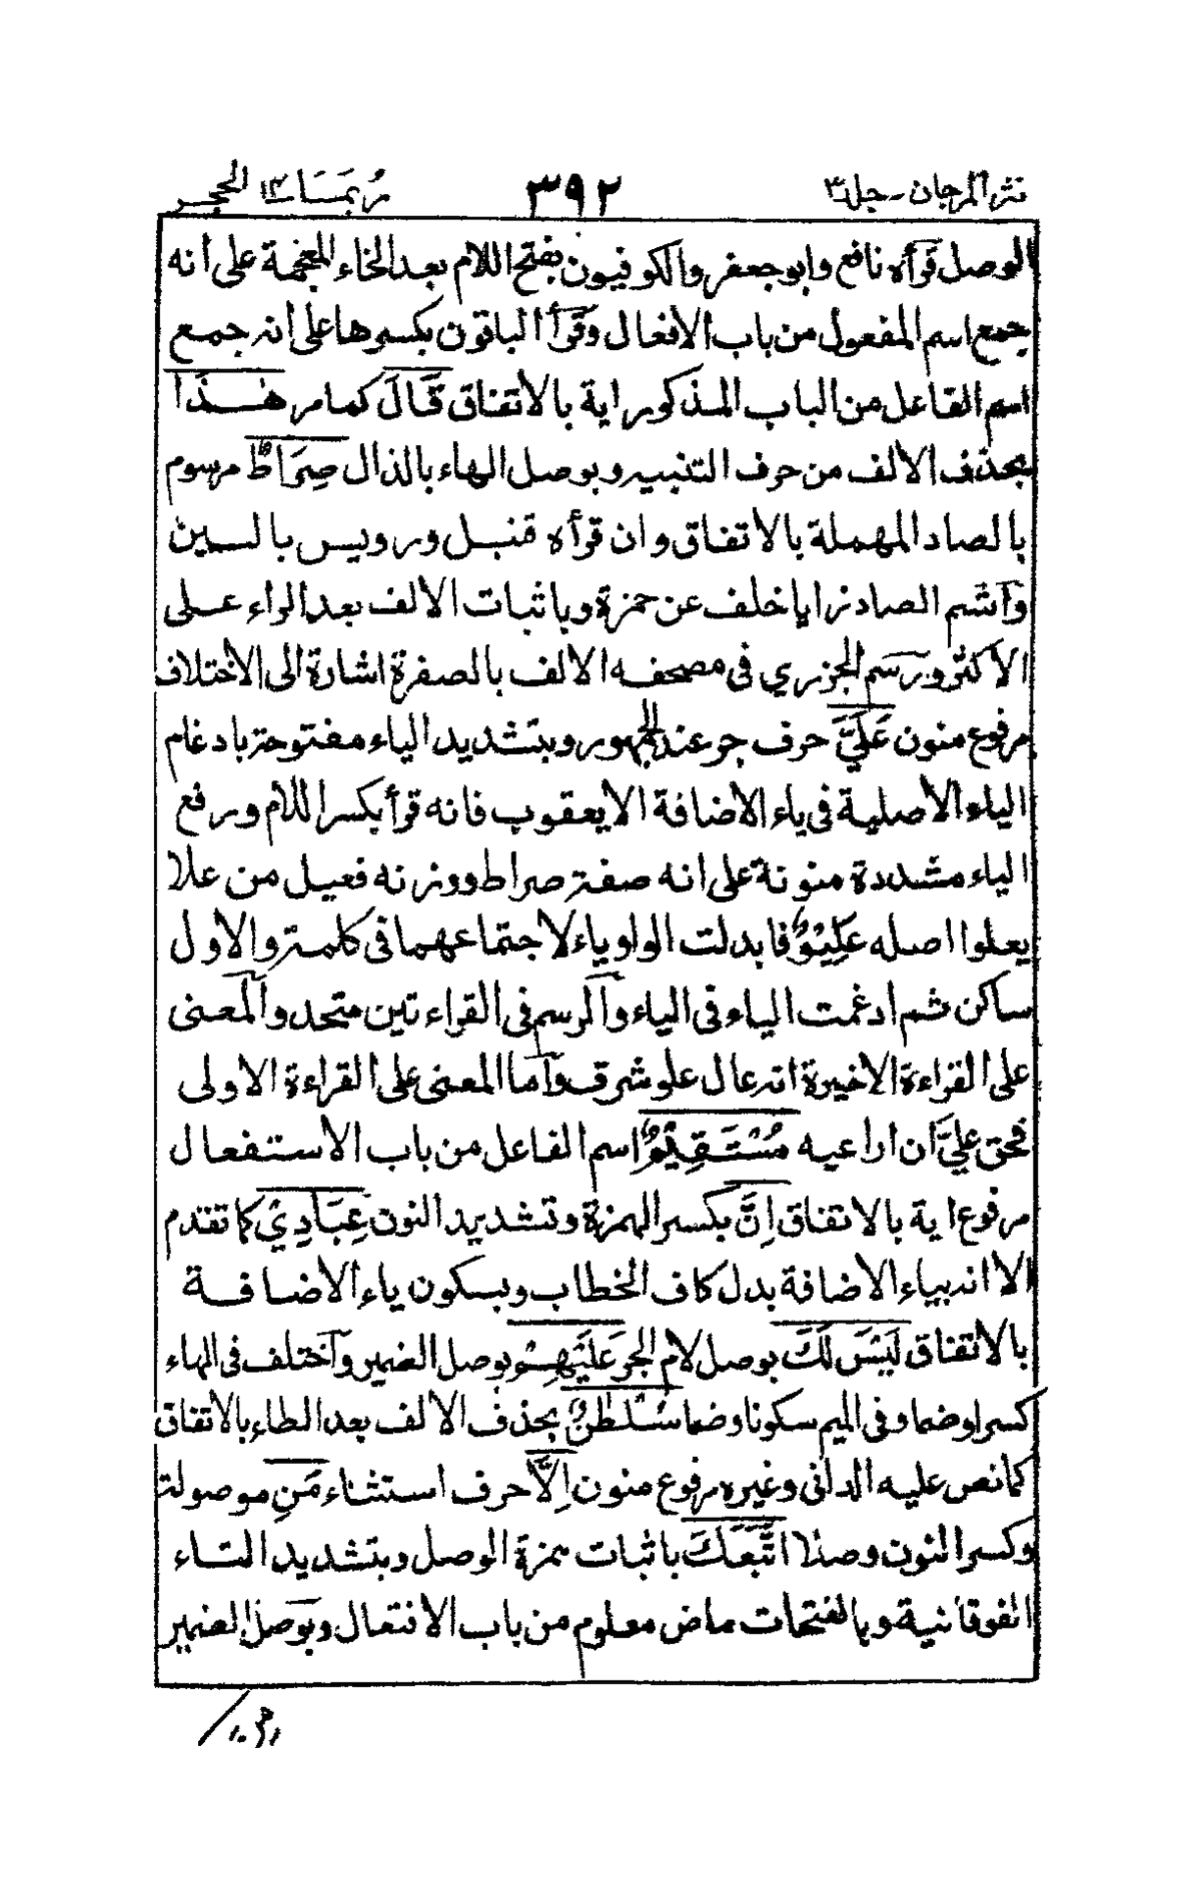 نثر المرجان - جلد ٣
٣٩٢
ربما ١٤ الحجر
الوصل قرأه نافع وابو جعفر والكوفيون بفتح اللام بعد الخاء المعجمة على انه
جمع اسم المفعول من باب الافعال وقرأ الباقون بكسرها على انه جمع
اسم الفاعل من الباب المذكور اية بالاتفاق قَالَ كما مر هٰذَا
بحذف الالف من حرف التنبيه وبوصل الهاء بالذال صِرَاطٌ مرسوم
بالصاد المهملة بالاتفاق وان قرأه قنبل ورويس بالسين
واشم الصاد زايا خلف عن حمزة وباثبات الالف بعد الراء على
الاكثر ورسم الجزري في مصحفه الالف بالصفرة اشارة الى الاختلاف
مرفوع منون عَلَيَّ حرف جر عند الجمهور وبتشديد الياء مفتوحة بادغام
الياء الاصلية في ياء الاضافة الا يعقوب فانه قرأ بكسر اللام ورفع
الياء مشددة منونة على انه صفة صراط ووزنه فعيل من علا
يعلوا اصله عَلِيْوٌ فابدلت الواو ياء لاجتماعهما في كلمة والاول
ساكن ثم ادغمت الياء في الياء والرسم في القراءتين متحد والمعنى
على القراءة الاخيرة انه عال علو شرف واما المعنى على القراءة الاولى
فحق عليّ ان اراعيه مُسْتَقِيْمٌ اسم الفاعل من باب الاستفعال
مرفوع اية بالاتفاق اِنَّ بكسر الهمزة وتشديد النون عِبَادِيْ كما تقدم
الا انه بياء الاضافة بدل كاف الخطاب وبسكون ياء الاضافة
بالاتفاق لَيْسَ لَكَ بوصل لام الجر عَلَيْهِمْ بوصل الضمير واختلف في الهاء
كسرا وضما وفي الميم سكونا وضما سُلْطٰنٌ بحذف الالف بعد الطاء بالاتفاق
كما نص عليه الداني وغيره مرفوع منون اِلَّا حرف استثناء مَنِ موصولة
وكسر النون وصلا اتَّبَعَكَ باثبات همزة الوصل وبتشديد التاء
الفوقانية وبالفتحات ماض معلوم من باب الافتعال وبوصل الضمير